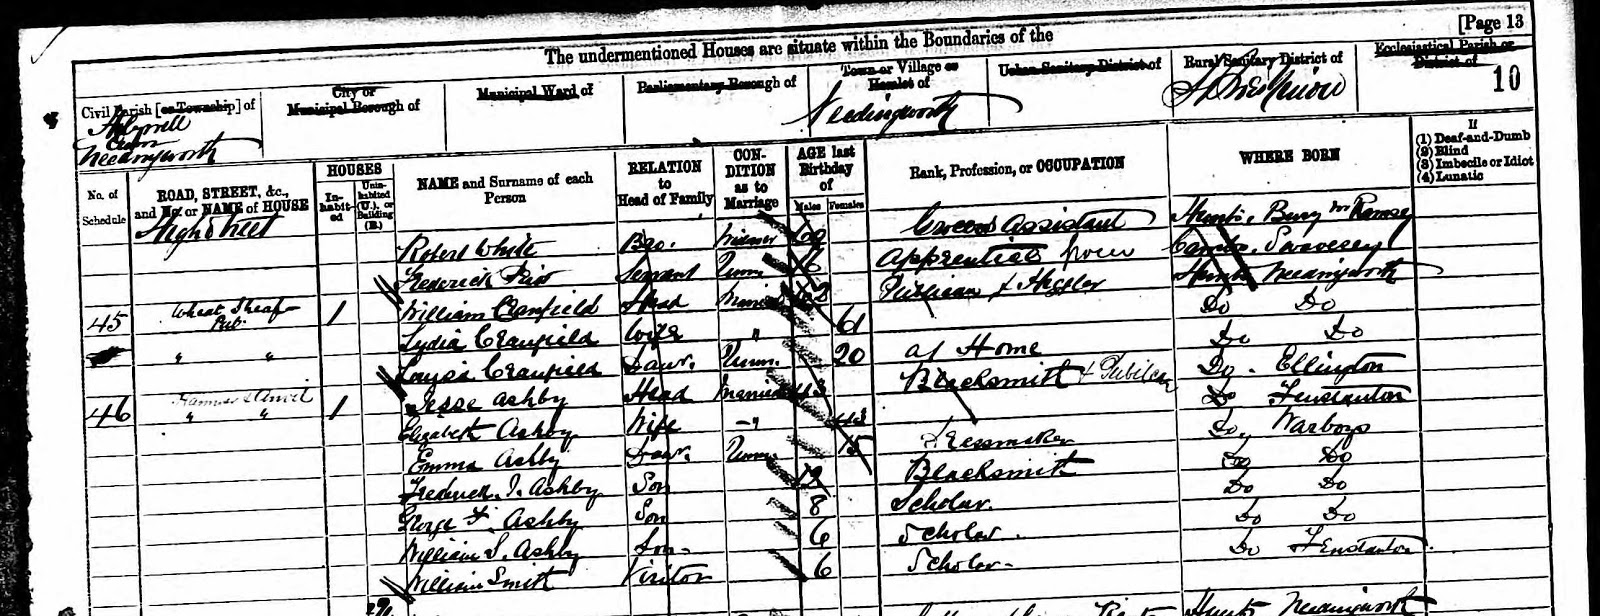 [Page 13
The undermentioned Houses are situate within the Boundaries of the
Civil Parish [or Township] of
City or Municipal Borough of
Municipal Ward of
Parliamentary Borough of
Town or Village or Hamlet of
Urban Sanitary District of
Rural Sanitary District of
Ecclesiastical Parish or District of
Holywell Cum Needingworth
Needingworth
St Ives Union
10
No. of Schedule
ROAD, STREET, &c., and No. or NAME of HOUSE
HOUSES
In-habit-ed
Unin-habited (U.), or Building (B.)
NAME and Surname of each Person
RELATION to Head of Family
CON-DITION as to Marriage
AGE last Birthday of
Males
Females
Rank, Profession, or OCCUPATION
WHERE BORN
If
(1) Deaf-and-Dumb
(2) Blind
(3) Imbecile or Idiot
(4) Lunatic
High Street
Robert White Bro. Widower Grocers Assistant Hunts. Bury Nr Ramsey
Frederick Servant Unm. Apprentice Cambs. Swavesey
45 Wheat Sheaf Pub. 1 William Cranfield Head Married Publican & Higgler Hunts Needingworth
" " Lydia Cranfield Wife " 61 Do Do
Louisa Cranfield Daur. Unm. 20 at Home Do Do
46 Hammer & Anvil 1 Jesse Ashby Head Married 43 Blacksmith & Publican Do. Ellington
" " Elizabeth Ashby Wife " 43 Do Fenstanton
Emma Ashby Daur. Unm. 15 Dressmaker Do, Warboys
Frederick. J. Ashby Son Blacksmith Do Do
George F. Ashby Son 8 Scholar. Do Do
William S. Ashby Son 6 Scholar. Do Do
William Smith Visitor 6 Scholar Do Fenstanton
Hunts Needingworth